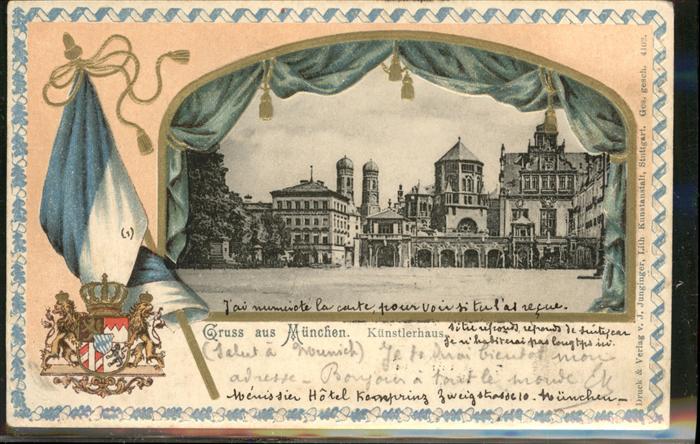 (1)
J'ai numérote la carte, pour voir si tu l'as reçue.
Gruss aus München. Künstlerhaus.
si tu réponds, réponds de suite, car
je n'habiterai pas longtps ici.
(Salut à Munich) Je te dirai bientôt mon
adresse - Bonjour à tout le monde
Ménissier Hôtel Kronprinz Zweigstrasse 10. München -
Druck & Verlag v. J. Junginger, Lith. Kunstanstalt, Stuttgart. Ges. gesch. 4102.